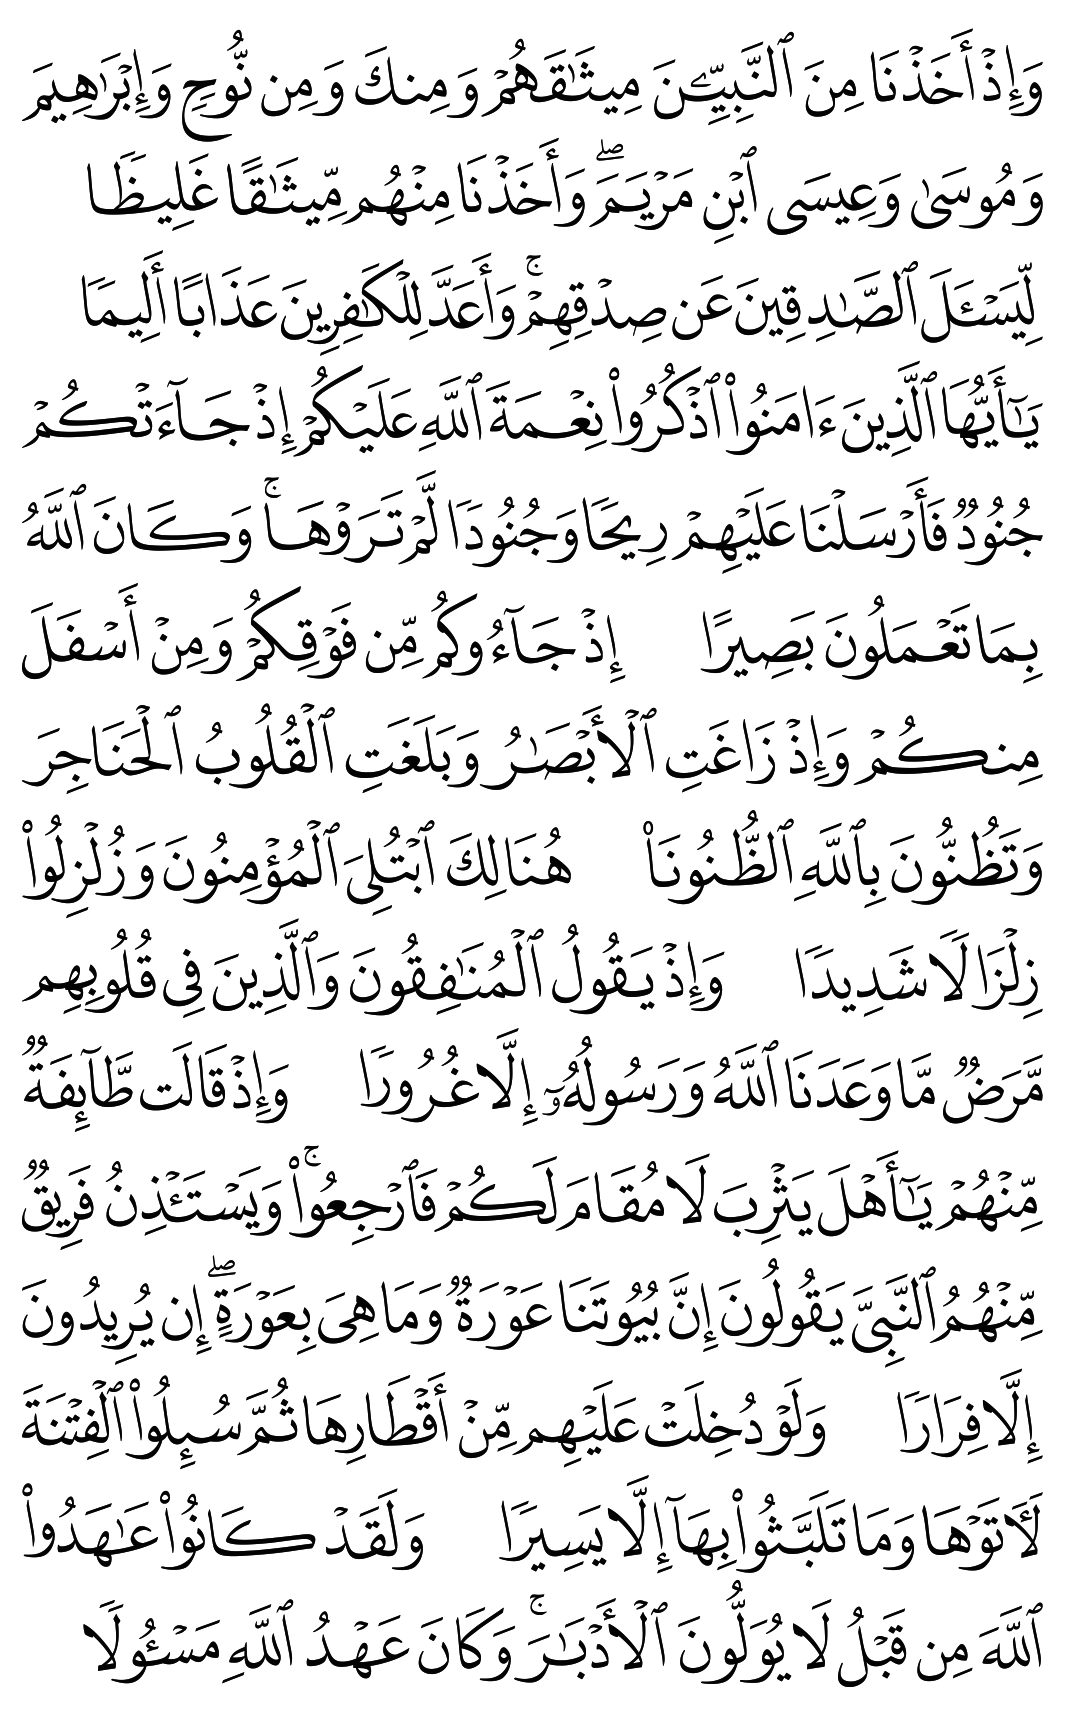 وَإِذْ أَخَذْنَا مِنَ ٱلنَّبِيِّـۧنَ مِيثَـٰقَهُمْ وَمِنكَ وَمِن نُّوحٍ وَإِبْرَٰهِيمَ
وَمُوسَىٰ وَعِيسَى ٱبْنِ مَرْيَمَ ۖ وَأَخَذْنَا مِنْهُم مِّيثَـٰقًا غَلِيظًا
لِّيَسْـَٔلَ ٱلصَّـٰدِقِينَ عَن صِدْقِهِمْ ۚ وَأَعَدَّ لِلْكَـٰفِرِينَ عَذَابًا أَلِيمًا
يَـٰٓأَيُّهَا ٱلَّذِينَ ءَامَنُوا۟ ٱذْكُرُوا۟ نِعْمَةَ ٱللَّهِ عَلَيْكُمْ إِذْ جَآءَتْكُمْ
جُنُودٌ فَأَرْسَلْنَا عَلَيْهِمْ رِيحًا وَجُنُودًا لَّمْ تَرَوْهَا ۚ وَكَانَ ٱللَّهُ
بِمَا تَعْمَلُونَ بَصِيرًا إِذْ جَآءُوكُم مِّن فَوْقِكُمْ وَمِنْ أَسْفَلَ
مِنكُمْ وَإِذْ زَاغَتِ ٱلْأَبْصَـٰرُ وَبَلَغَتِ ٱلْقُلُوبُ ٱلْحَنَاجِرَ
وَتَظُنُّونَ بِٱللَّهِ ٱلظُّنُونَا۠ هُنَالِكَ ٱبْتُلِىَ ٱلْمُؤْمِنُونَ وَزُلْزِلُوا۟
زِلْزَالًا شَدِيدًا وَإِذْ يَقُولُ ٱلْمُنَـٰفِقُونَ وَٱلَّذِينَ فِى قُلُوبِهِم
مَّرَضٌ مَّا وَعَدَنَا ٱللَّهُ وَرَسُولُهُۥٓ إِلَّا غُرُورًا وَإِذْ قَالَت طَّآئِفَةٌ
مِّنْهُمْ يَـٰٓأَهْلَ يَثْرِبَ لَا مُقَامَ لَكُمْ فَٱرْجِعُوا۟ ۚ وَيَسْتَـْٔذِنُ فَرِيقٌ
مِّنْهُمُ ٱلنَّبِىَّ يَقُولُونَ إِنَّ بُيُوتَنَا عَوْرَةٌ وَمَا هِىَ بِعَوْرَةٍ ۖ إِن يُرِيدُونَ
إِلَّا فِرَارًا وَلَوْ دُخِلَتْ عَلَيْهِم مِّنْ أَقْطَارِهَا ثُمَّ سُئِلُوا۟ ٱلْفِتْنَةَ
لَـَٔاتَوْهَا وَمَا تَلَبَّثُوا۟ بِهَآ إِلَّا يَسِيرًا وَلَقَدْ كَانُوا۟ عَـٰهَدُوا۟
ٱللَّهَ مِن قَبْلُ لَا يُوَلُّونَ ٱلْأَدْبَـٰرَ ۚ وَكَانَ عَهْدُ ٱللَّهِ مَسْـُٔولًا